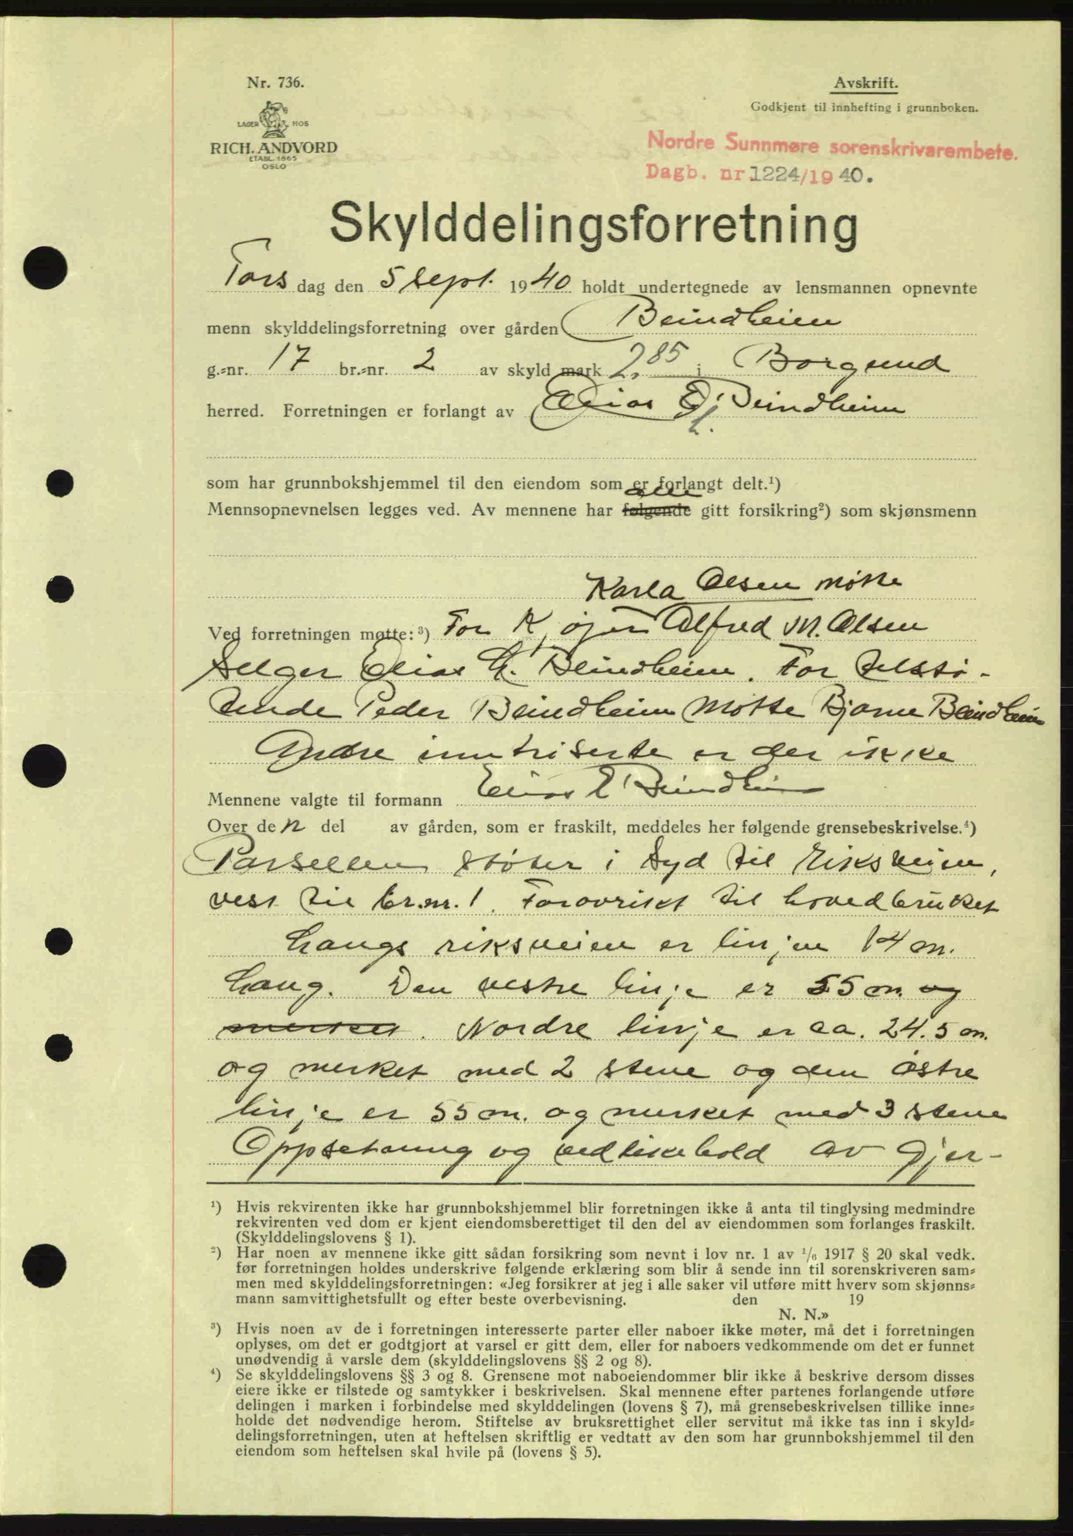 Nr. 736.
LAGER HOS
RICH. ANDVORD
ETABL. 1865
OSLO
Avskrift.
Godkjent til innhefting i grunnboken.
Nordre Sunnmøre sorenskrivarembete.
Dagb. nr 1224/1940.
Skylddelingsforretning
Torsdag den 5 sept. 1940 holdt undertegnede av lensmannen opnevnte
menn skylddelingsforretning over gården Beindheim
g.-nr. 17 br.-nr. 2 av skyld mark 2.85 i Borgund
herred. Forretningen er forlangt av Elias E. Beindheim
som har grunnbokshjemmel til den eiendom som er forlangt delt.¹)
alle
Mennsopnevnelsen legges ved. Av mennene har følgende gitt forsikring²) som skjønsmenn
Karla Olsen møtte
Ved forretningen møtte:³) For Kjøper Alfred M. Olsen
Selger Elias E. Beindheim. For tilstø-
tende Peder Beindheim møtte Bjarne Beindheim
Andre inntriserte er der ikke
Mennene valgte til formann Elias E Beindheim
Over den del av gården, som er fraskilt, meddeles her følgende grensebeskrivelse.⁴)
Parsellen støter i Syd til Riksveien,
vest til br.nr. 1. Forøvrikt til hovedbruket
Langs riksveien er linjen 14 m.
lang. Den vestre linje er 55 m. og
merket. Nordre linje er ca. 24.5 m.
og merket med 2 stene og den østre
linje er 55 m. og merket med 3 stene
Oppsetning og vedlikehold av gjer-
¹) Hvis rekvirenten ikke har grunnbokshjemmel blir forretningen ikke å anta til tinglysing medmindre
rekvirenten ved dom er kjent eiendomsberettiget til den del av eiendommen som forlanges fraskilt.
(Skylddelingslovens § 1).
²) Har noen av mennene ikke gitt sådan forsikring som nevnt i lov nr. 1 av ¹/₆ 1917 § 20 skal vedk.
før forretningen holdes underskrive følgende erklæring som blir å sende inn til sorenskriveren sam-
men med skylddelingsforretningen: «Jeg forsikrer at jeg i alle saker vil utføre mitt hverv som skjønns-
mann samvittighetsfullt og efter beste overbevisning. den 19
N. N.»
³) Hvis noen av de i forretningen interesserte parter eller naboer ikke møter, må det i forretningen
oplyses, om det er godtgjort at varsel er gitt dem, eller for naboers vedkommende om det er funnet
unødvendig å varsle dem (skylddelingslovens §§ 2 og 8).
⁴) Se skylddelingslovens §§ 3 og 8. Grensene mot naboeiendommer blir ikke å beskrive dersom disses
eiere ikke er tilstede og samtykker i beskrivelsen. Skal mennene efter partenes forlangende utføre
delingen i marken i forbindelse med skylddelingen (lovens § 7), må grensebeskrivelsen tillike inne-
holde det nødvendige herom. Stiftelse av bruksrettighet eller servitut må ikke tas inn i skyld-
delingsforretningen, uten at heftelsen skriftlig er vedtatt av den som har grunnbokshjemmel til den
eiendom som heftelsen skal hvile på (lovens § 5).